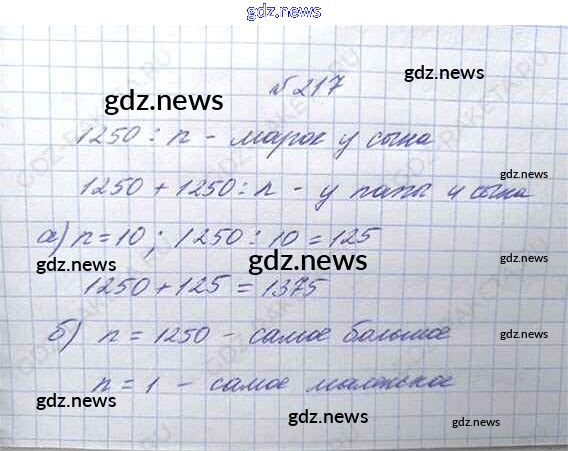 gdz.news
№ 217
gdz.news
gdz.news
1250 : n - марок у сына
gdz.news
1250 + 1250 : n - у папы и сына
а) n = 10 ; 1250 : 10 = 125
gdz.news
gdz.news
gdz.news
1250 + 125 = 1375
б) n = 1250 - самое большое
gdz.news
n = 1 - самое маленькое
gdz.news
gdz.news
gdz.news